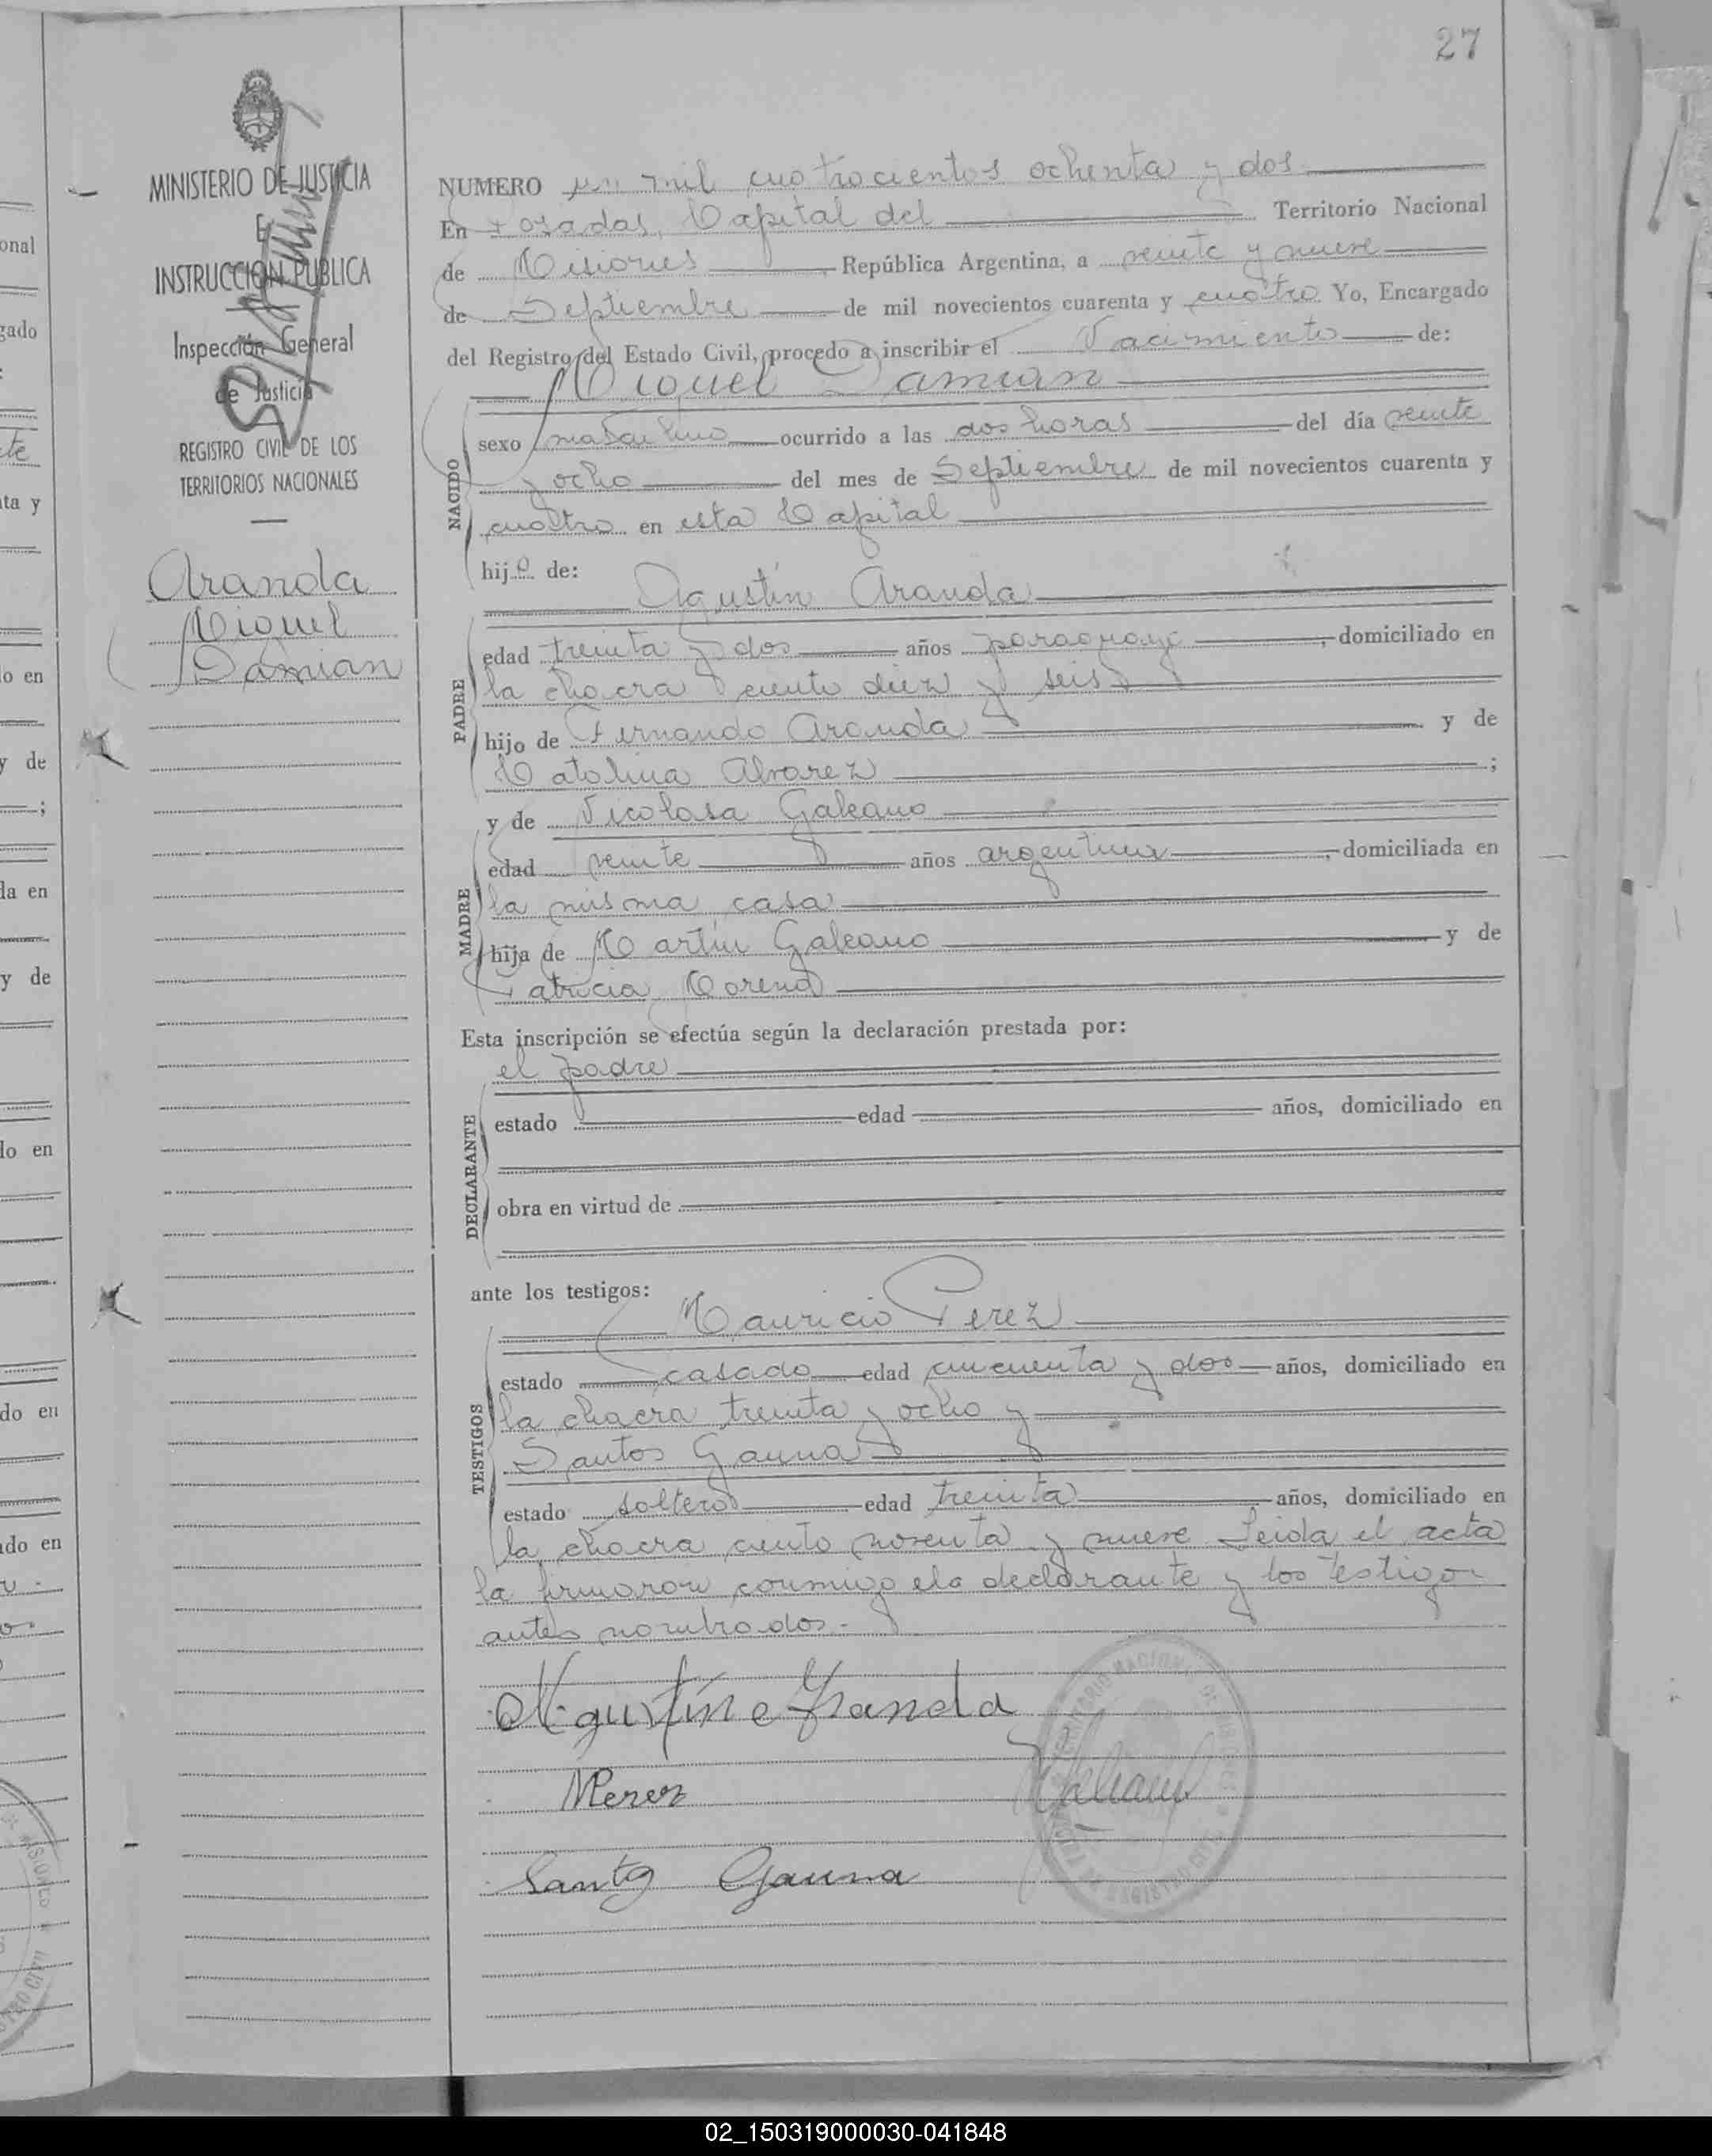 27
MINISTERIO DE JUSTICIA
E
INSTRUCCION PUBLICA
Inspección General
de Justicia
REGISTRO CIVIL DE LOS
TERRITORIOS NACIONALES
Aranda
Miguel
Damian
NUMERO un mil cuatrocientos ochenta y dos
En Posadas, Capital del Territorio Nacional
de Misiones, República Argentina, a veinte y nueve
de Septiembre de mil novecientos cuarenta y cuatro Yo, Encargado
del Registro del Estado Civil, procedo a inscribir el Nacimiento de:
Miguel Damian
NACIDO
sexo masculino ocurrido a las dos horas del día veinte
y ocho del mes de Septiembre de mil novecientos cuarenta y
cuatro en esta Capital
hijo de:
Agustín Aranda
PADRE
edad treinta y dos años paraguayo, domiciliado en
la chacra ciento diez y seis
hijo de Fernando Aranda y de
Catalina Alvarez;
y de Nicolasa Galeano
MADRE
edad veinte años argentina, domiciliada en
la misma casa
hija de Martín Galeano y de
Patricia Moreno
Esta inscripción se efectúa según la declaración prestada por:
el padre
DECLARANTE
estado edad años, domiciliado en
obra en virtud de
ante los testigos:
Mauricio Perez
TESTIGOS
estado casado edad cincuenta y dos años, domiciliado en
la chacra treinta y ocho y
Santos Gauna
estado soltero edad treinta años, domiciliado en
la chacra ciento noventa y nueve Leida el acta
la firmaron conmigo el declarante y los testigos
antes nombrados.-
Agustín Aranda
MPerez
Santos Gauna
02_150319000030-041848